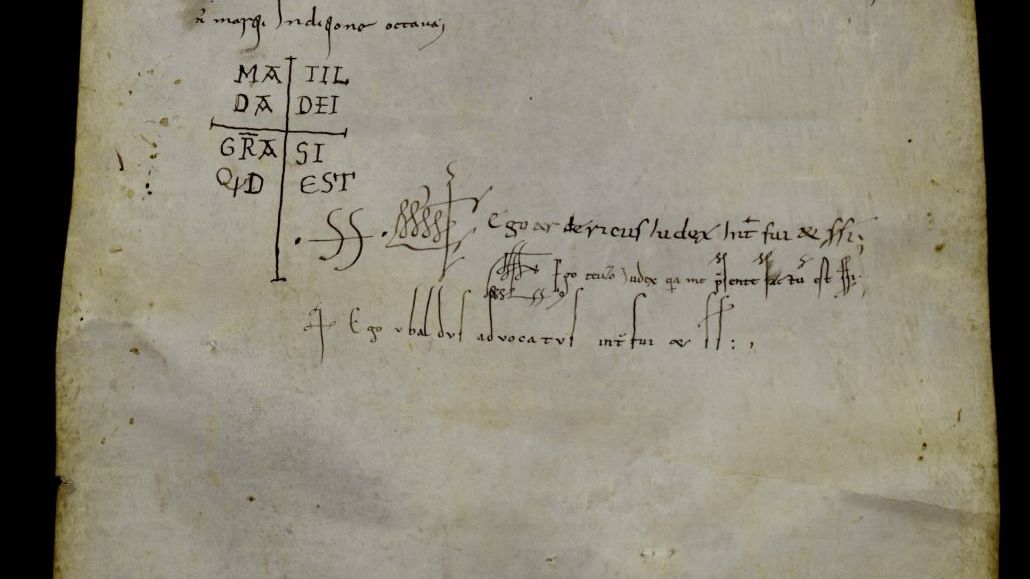 marcii Indictione octava;
MA TIL
DA DEI
GRA SI
QID EST
Ego ardericus Iudex Int fui & ss;
Ego teuzo Iudex qa me psente factu est ss;
Ego ubaldus advocatus int fui & ss:,